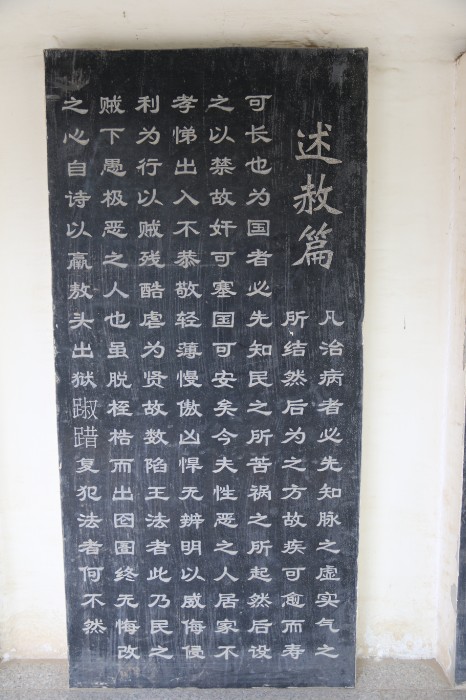 述赦篇
凡治病者必先知脉之虚实气之
所结然后为之方故疾可愈而寿
可长也为国者必先知民之所苦祸之所起然后设
之以禁故奸可塞国可安矣今夫性恶之人居家不
孝悌出入不恭敬轻薄慢傲凶悍无辨明以威侮侵
利为行以贼残酷虐为贤故数陷王法者此乃民之
贼下愚极恶之人也虽脱桎梏而出囹圄终无悔改
之心自诗以羸敖头出狱踧踖复犯法者何不然